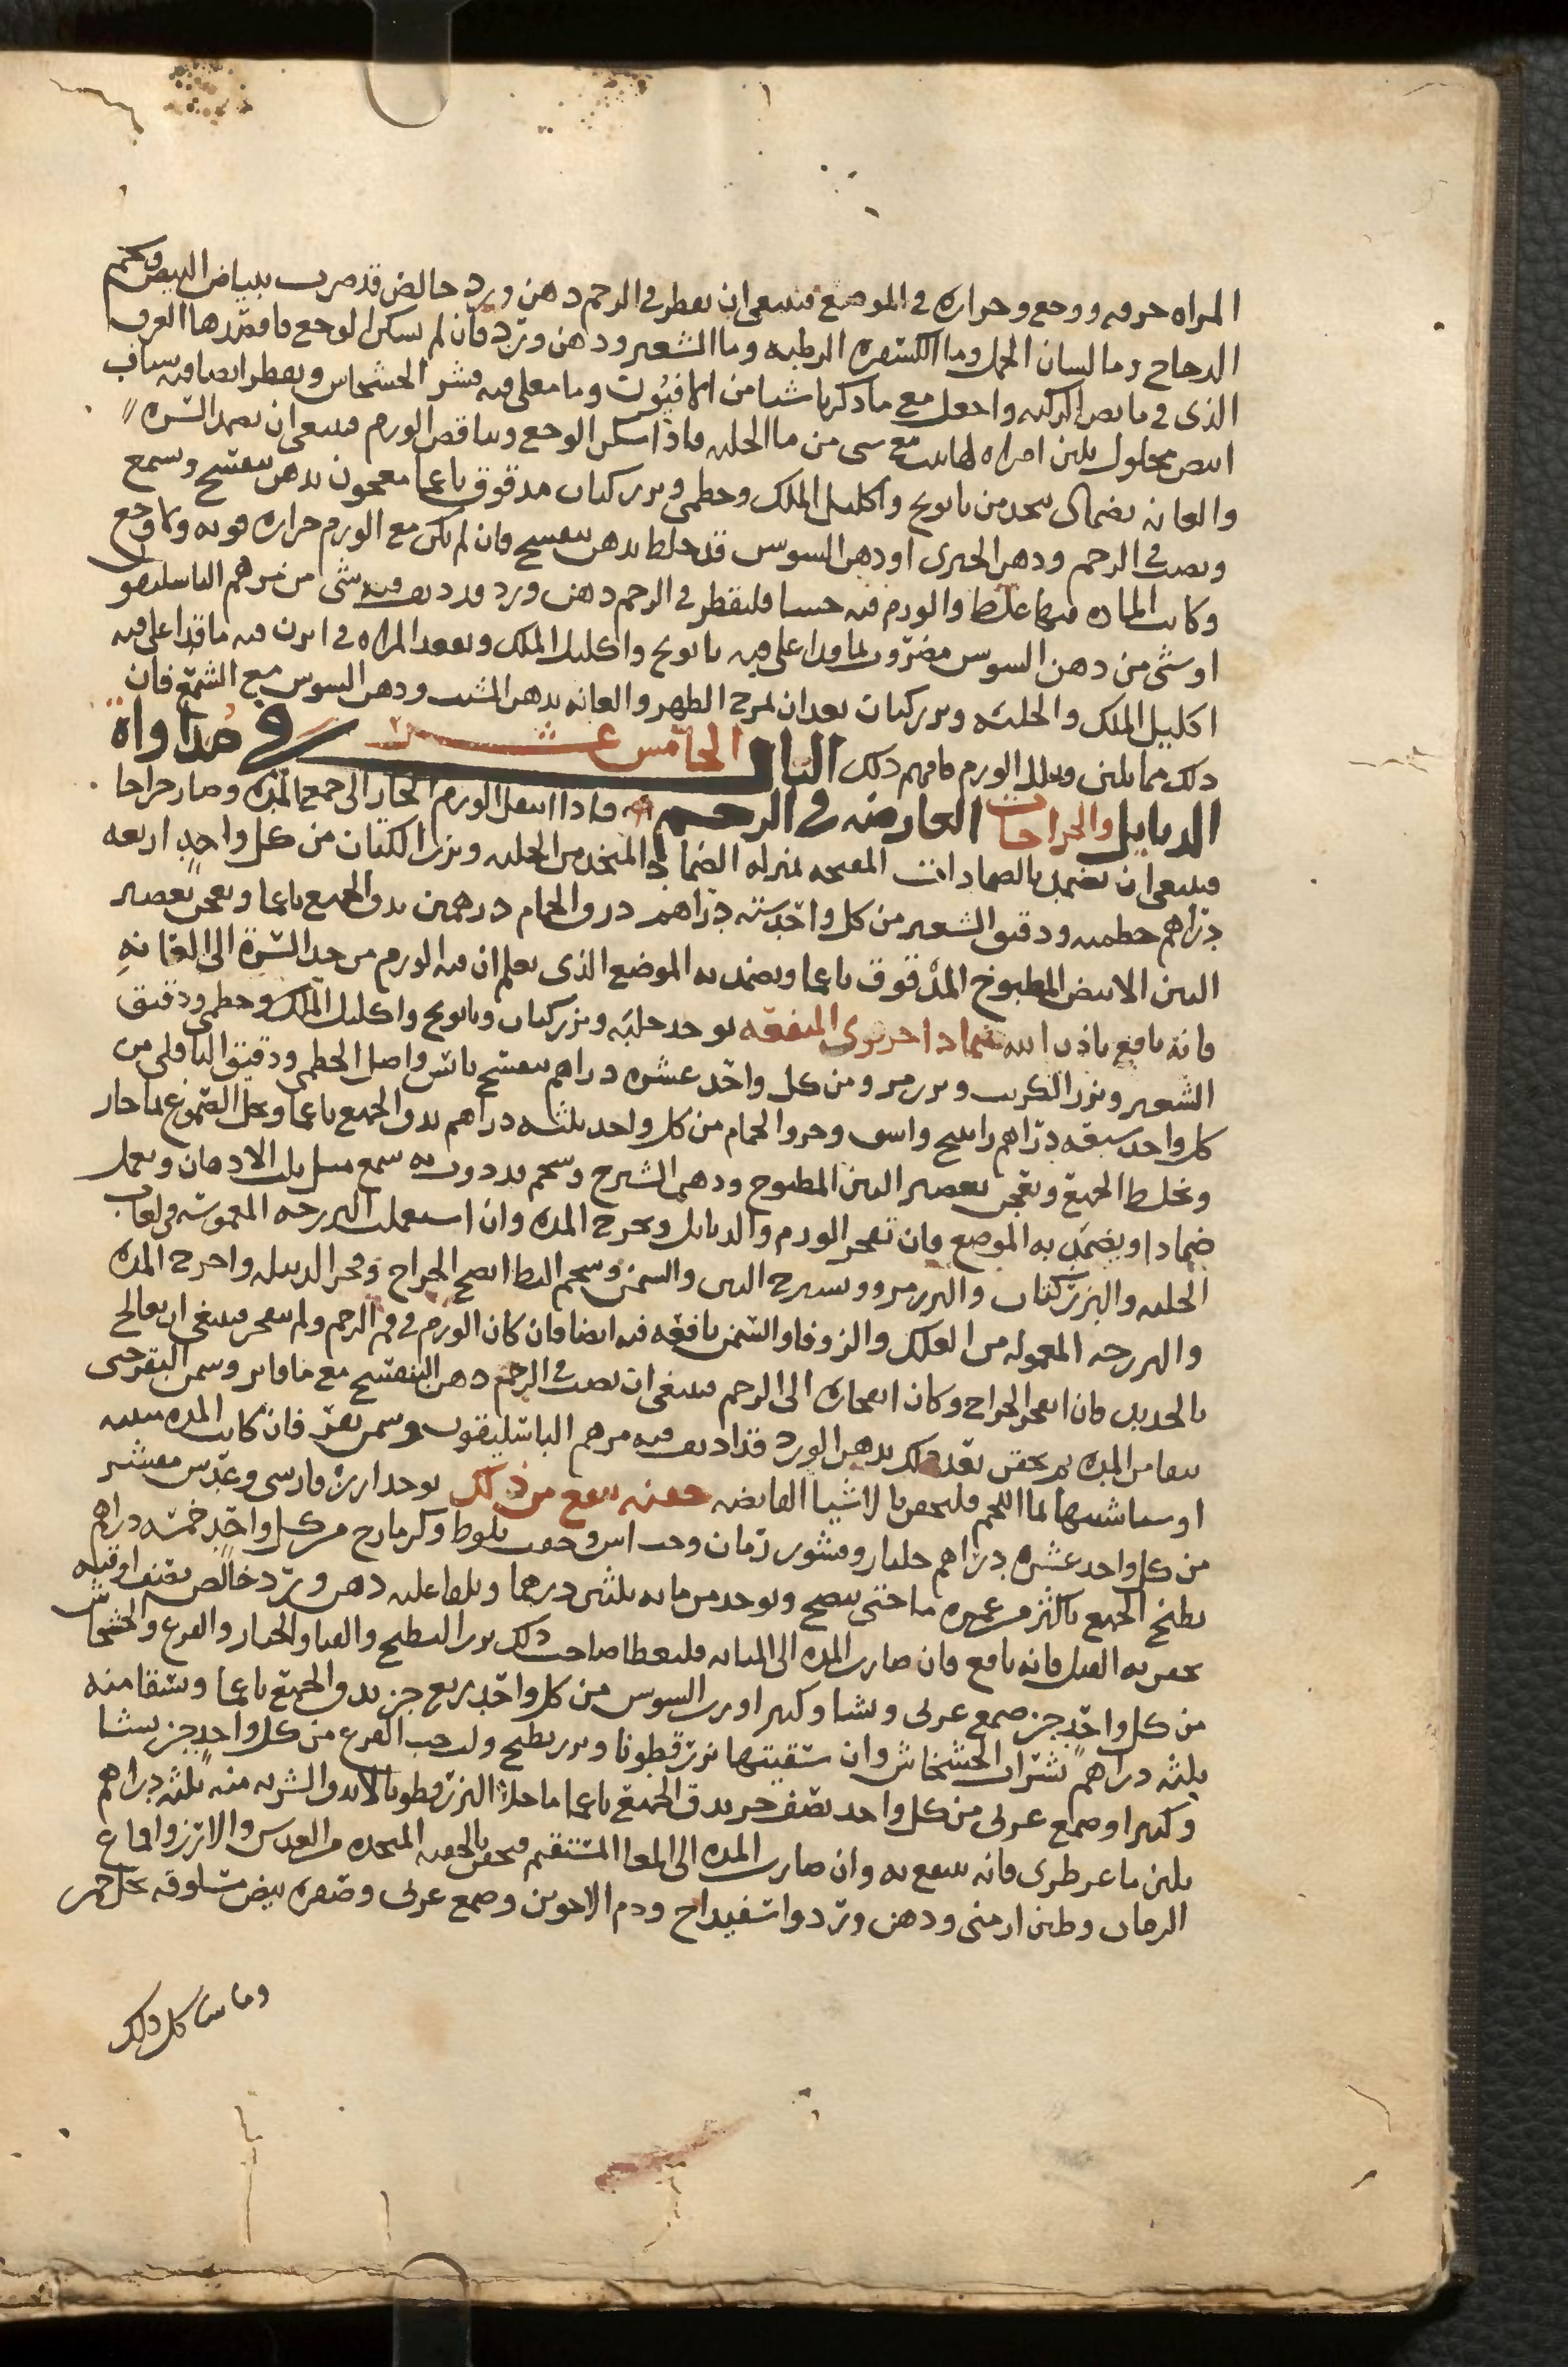 المراه حرقه ووجع وحراره في الموضع فينبغي ان يقطر في الرحم دهن ورد خالص قد ضرب ببياض البيض وشحم
الدجاج وما لسان الحمل وما الكسفره الرطبه وما الشعير ودهن ورد فان لم يسكن الوجع فافصدها العرق
الذي في مابض الركبه واجعل مع ما ذكرنا شيا من الافيون وما مغلي فيه قشر الخشخاش ويقطر ايضا فيه شياف
ابيض محلول بلبن امراه لها بنت مع شي من ما الحلبه فاذا سكن الوجع وتناقص الورم فينبغي ان يضمد السره
والعانه بضماد يتخذ من بابونج واكليل الملك وخطمي وبزر كتان مدقوق ناعما معجون بدهن بنفسج وشمع
ويصب في الرحم ودهن الخيري او دهن السوسن قد خلط بدهن بنفسج فان لم يكن مع الورم حراره قويه ولا وجع
وكانت الماده فيها غلظ والورم فيه جسا فليقطر في الرحم دهن ورد قد ديف فيه شي من مرهم الباسليقون
او شي من دهن السوسن مضروب بما قد اغلي فيه بابونج واكليل الملك وتقعد المراه في ابزن فيه ما قد اغلي فيه
اكليل الملك والحلبه وبزر كتان بعد ان يمرخ الظهر والعانه بدهن الشبت ودهن السوسن مع الشمع فان
ذلك مما يلين ويحلل الورم فافهم ذلك الباب الخامس عشر في مداواة
الدبايل والجراحات العارضه في الرحم فاذا انتقل الورم الحار الى جمع المده وصار خراجا
فينبغي ان يضمد بالضمادات المفتحه بمنزله الضماد المتخذ من الحلبه وبزر الكتان من كل واحد اربعه
دراهم خطميه ودقيق الشعير من كل واحد سته دراهم ذرق الحمام درهمين يدق الجميع ناعما ويعجن بعصير
التين الابيض المطبوخ المدقوق ناعما ويضمد به الموضع الذي يعلم ان فيه الورم من حد السره الى العانه
فانه نافع باذن الله ضماد اخر قوي المنفعه يوخذ حلبه وبزر كتان وبابونج واكليل الملك وخطمي ودقيق
الشعير وبزر الكرنب وبزر مر ومن كل واحد عشره دراهم بنفسج يابس واصل الخطمي ودقيق الباقلي من
كل واحد سبعه دراهم راتينج واشق وخرو الحمام من كل واحد ثلثه دراهم يدق الجميع ناعما ويحل الصموغ بما حار
ويخلط الجميع ويعجن بعصير التين المطبوخ ودهن الشيرج وشحم يدوب به شمع مسل بتلك الادهان ويعمل
ضمادا ويضمد به الموضع فان تفجر الورم والدبايل ويخرج المده وان استعملت الفرزجه المغموسه في لعاب
الحلبه والبزر كتان والبزر مرو وشيرج التين والسمن وشحم البط انضج الجراح وفجر الدبيله واخرج المده
والفرزجه المعموله من العلك والزوفا والسمن نافعه فيه ايضا فان كان الورم في فم الرحم ولم ينفجر فينبغي ان يعالج
بالحديد فان انفجر الجراح وكان انفجاره الى الرحم فينبغي ان يصب في الرحم دهن البنفسج مع ما فاتر وسمن البقر حتى
ينقا من المده ثم يحقن بعد ذلك بدهن الورد قد اديف فيه مرهم الباسليقون وسمن بقر فان كانت المده منتنه
او مما شبيهه بما اللحم فليحقن بالاشيا القابضه حقنه تنفع من ذلك يوخذ ارز فارسي وعدس مقشر
من كل واحد عشره دراهم جلنار وقشور رمان وحب اس وجفت بلوط وكزمازج من كل واحد خمسه دراهم
يطبخ الجميع باكثر من غمره ما حتى ينضج ويوخذ من مايه ثلثين درهما ويلقا عليه دهن ورد خالص نصف اوقيه
يحقن به القبل فانه نافع فان صارت المده الى المثانه فليعطا صاحب ذلك بزر البطيخ والقثا والخيار والقرع والخشخاش
من كل واحد جز صمغ عربي ونشا وكثيرا ورب السوس من كل واحد ربع جز يدق الجميع ناعما ويسقا منه
ثلثه دراهم بشراب الخشخاش وان سقيتها بزر قطونا وبزر بطيخ ولب حب القرع من كل واحد جز نشا
وكثيرا وصمغ عربي من كل واحد نصف جز يدق الجميع ناعما ما خلا البزر قطونا لا يدق الشربه منه ثلثه دراهم
بلبن ماعز طري فانه ينتفع به وان صارت المده الى المعا المستقيم فيحقن بالحقنه المتخذه من العدس والارز واقماع
الرمان وطين ارمني ودهن ورد واسفيداج ودم الاخوين وصمغ عربي وصفره بيض مسلوقه بخل خمر
وما شاكل ذلك